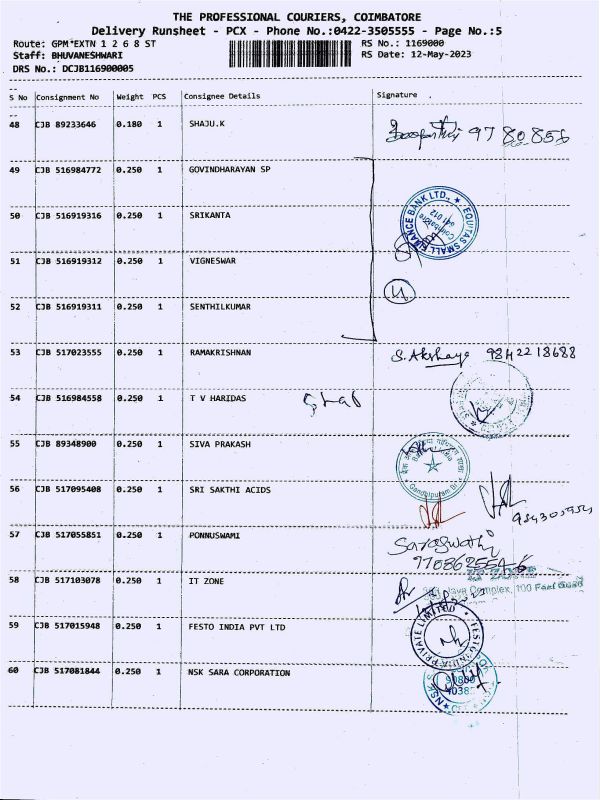 THE PROFESSIONAL COURIERS, COIMBATORE
Delivery Runsheet - PCX - Phone No.:0422-3505555 - Page No.:5
Route: GPM EXTN 1 2 6 8 ST
RS No.: 1169000
Staff: BHUVANESHWARI
RS Date: 12-May-2023
DRS No.: DCJB116900005
S No Consignment No Weight PCS Consignee Details Signature
48 CJB 89233646 0.180 1 SHAJU.K
49 CJB 516984772 0.250 1 GOVINDHARAYAN SP
EQUITAS SMALL FINANCE BANK LTD.,
Coimbatore 641 012
50 CJB 516919316 0.250 1 SRIKANTA
51 CJB 516919312 0.250 1 VIGNESWAR
52 CJB 516919311 0.250 1 SENTHILKUMAR
53 CJB 517023555 0.250 1 RAMAKRISHNAN S. Akshaya 9842218688
54 CJB 516984558 0.250 1 T V HARIDAS
55 CJB 89348900 0.250 1 SIVA PRAKASH
56 CJB 517095408 0.250 1 SRI SAKTHI ACIDS
57 CJB 517055851 0.250 1 PONNUSWAMI Saraswathi
58 CJB 517103078 0.250 1 IT ZONE
Complex, 100 Feet Road
59 CJB 517015948 0.250 1 FESTO INDIA PVT LTD
FESTO INDIA PRIVATE LIMITED
60 CJB 517081844 0.250 1 NSK SARA CORPORATION
NSK